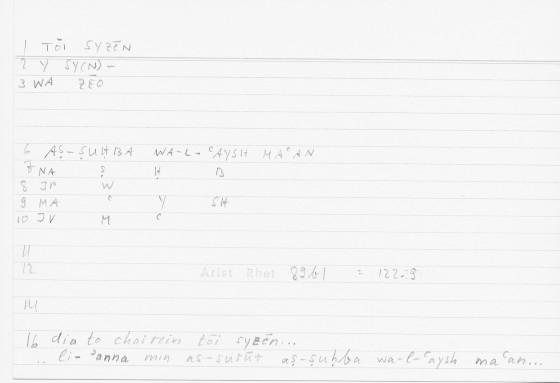 1 TŌI SYZĒN
2 Y SY(N)–
3 WA ZĒO
6 AṢ-ṢUḤBA WA-L-ʿAYSH MAʿAN
7 NA Ṣ Ḥ B
8 JP W
9 MA ʿ Y SH
10 JV M ʿ
11
12 Arist Rhet 89b1 = 122.9
14
16 dia to chairein tōi syzēn...
.. li-ʾanna min as-surūr aṣ-ṣuḥba wa-l-ʿaysh maʿan...